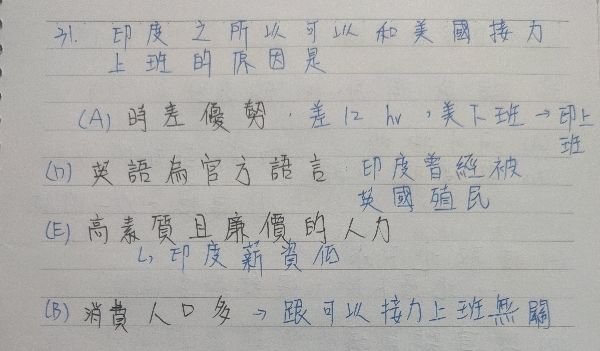 31. 印度之所以可以和美國接力
上班的原因是
(A) 時差優勢,差12 hr,美下班→印上
班
(D) 英語為官方語言 印度曾經被
英國殖民
(E) 高素質且廉價的人力
↳印度薪資低
(B) 消費人口多→跟可以接力上班無關